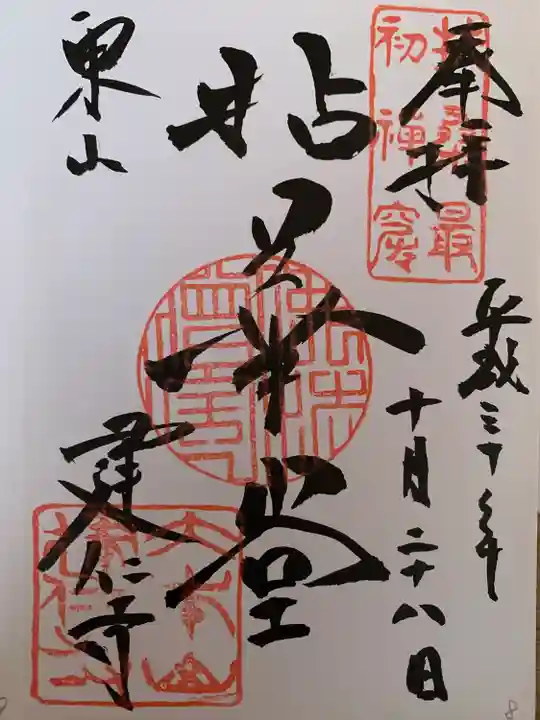 奉拝
扶桑最
初禅窟
平成三十年
十月二十八日
拈華堂
東山
建仁寺
大本山
建仁寺